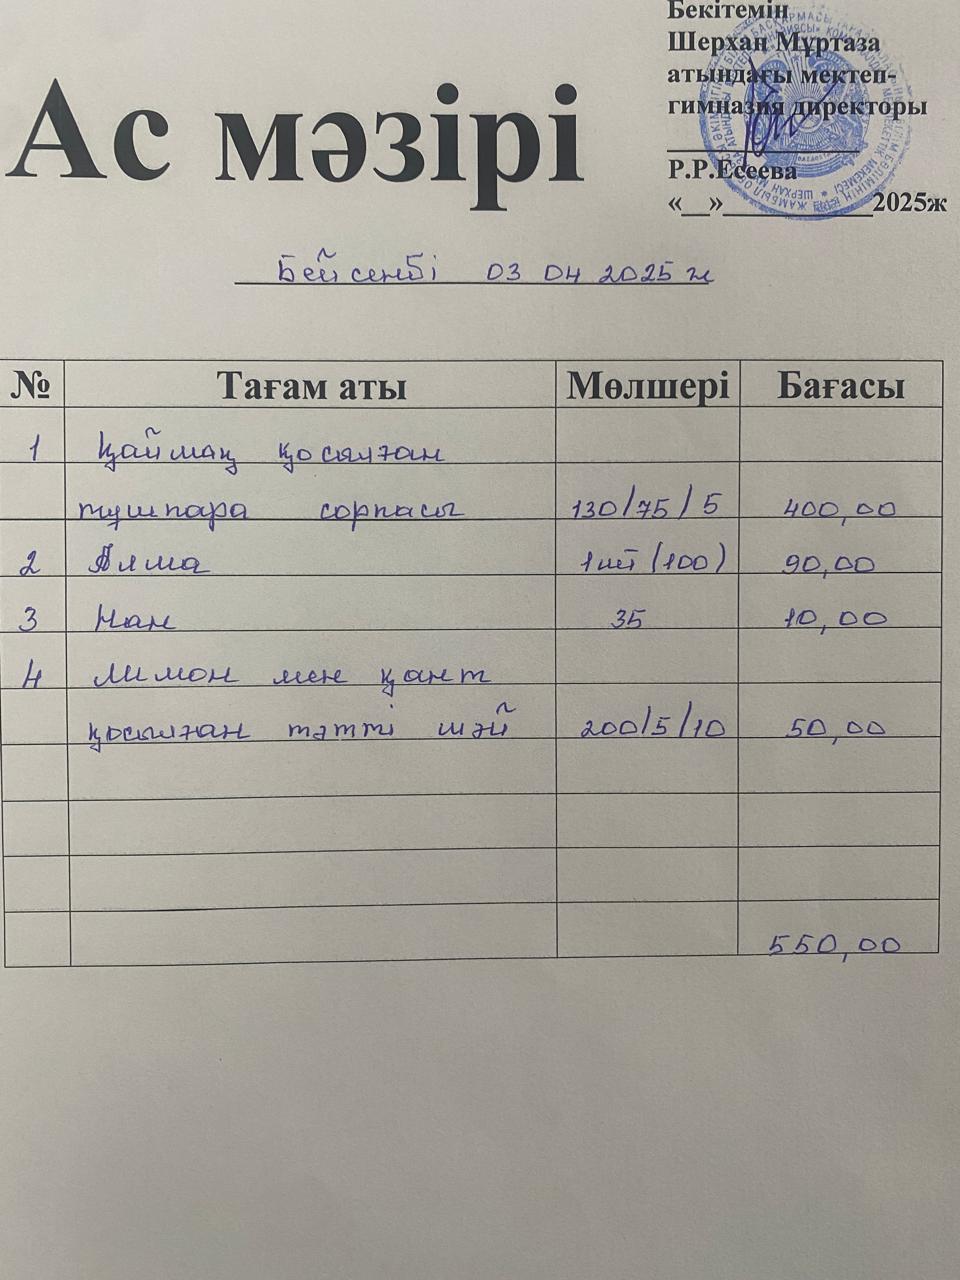 Бекітемін
Шерхан Мұртаза
атындағы мектеп-
гимназия директоры
Р.Р.Есеева
«__»___________2025ж
Ас мәзірі
Бейсенбі 03 04 2025 ж
№ Тағам аты Мөлшері Бағасы
1 Қаймақ қосылған
тұшпара сорпасы 130/75/5 400,00
2 Алма 1шт (100) 90,00
3 Нан 35 10,00
4 Лимон мен қант
қосылған тәтті шәй 200/5/10 50,00
550,00